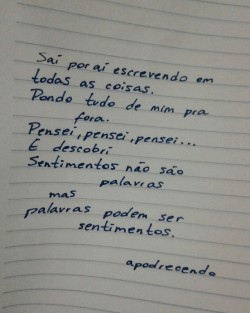 Saí por aí escrevendo em
todas as coisas.
Pondo tudo de mim pra
fora.
Pensei, pensei, pensei...
E descobri
Sentimentos não são
palavras
mas
palavras podem ser
sentimentos.
apodrecendo